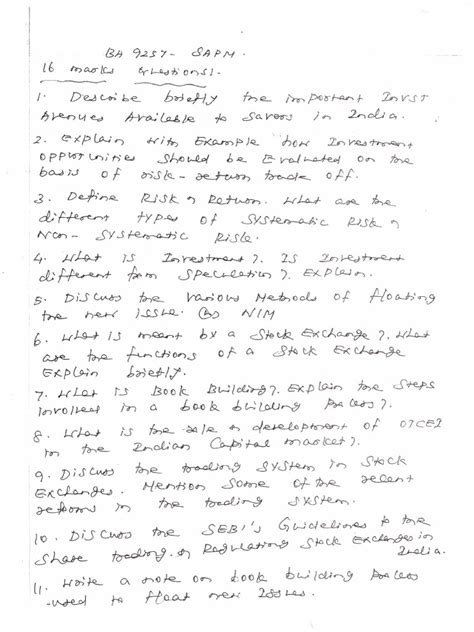 BA 9257- SAPM.
16 marks questions:-
1. Describe briefly the important Invst
Avenues Available to Savers in India.
2. Explain with Example how Investment
opportunities should be Evaluated on the
basis of risk-return trade off.
3. Define Risk & Return. What are the
different types of Systematic Risk &
Non-Systematic Risk.
4. What is Investment?. Is Investment
different from Speculation?. Explain.
5. Discuss the various Methods of floating
the new issue. NIM
6. What is meant by a Stock Exchange?. What
are the functions of a Stock Exchange
Explain briefly.
7. What is Book Building?. Explain the Steps
involved in a book building Process?.
8. What is the role & development of OTCEI
in the Indian Capital market?.
9. Discuss the trading system in Stock
Exchanges. Mention Some of the recent
reforms in the trading System.
10. Discuss the SEBI's Guidelines to the
Share trading & Regulating Stock Exchanges in
India.
11. Write a note on book building Process
-used to float new Issues.